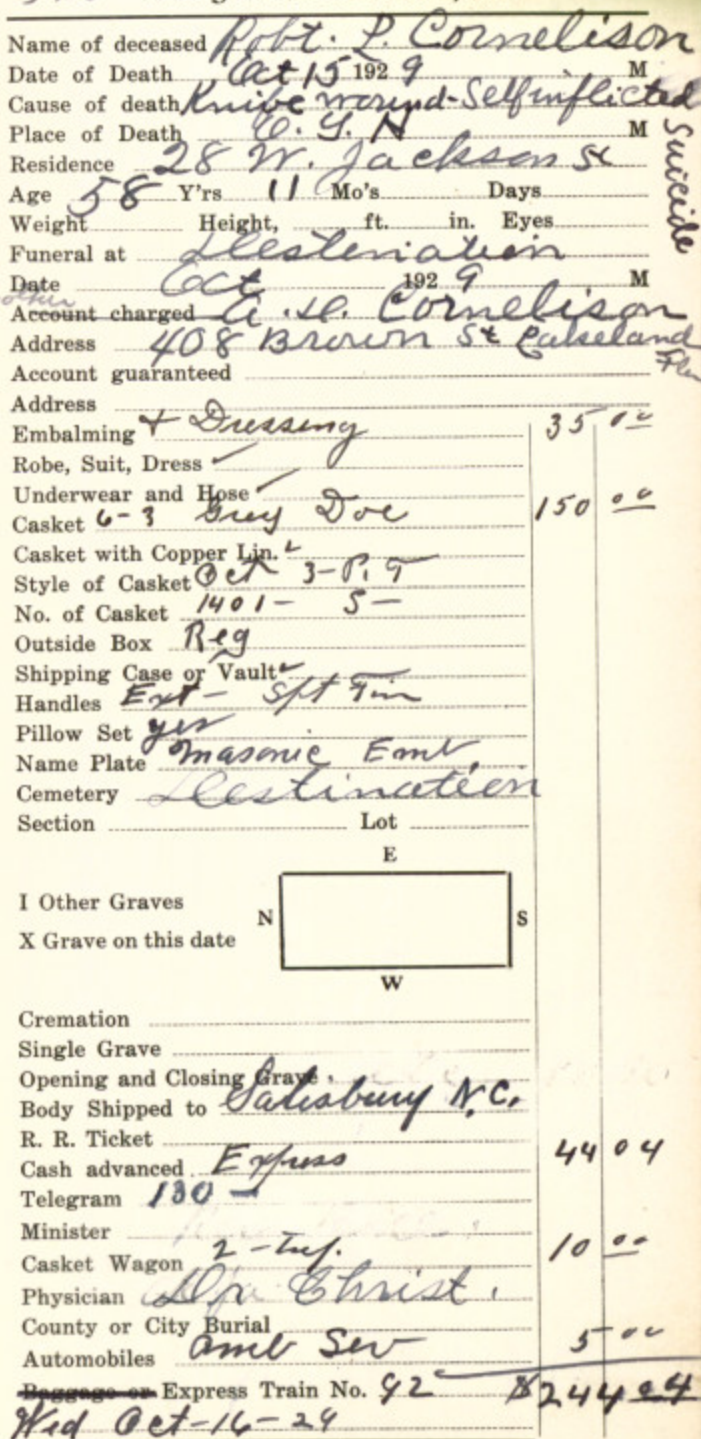 Name of deceased Robt. L. Cornelison
Date of Death Oct 15 1929 M
Cause of death Knife wound-Self inflicted
Place of Death M
Suicide
Residence 28 W. Jackson St
Age 58 Y'rs 11 Mo's Days
Weight Height, ft. in. Eyes
Funeral at Destination
Date Oct 1929 M
other
Account charged Cornelison
Address 408 Brown St Lakeland Fla
Account guaranteed
Address
Embalming + Dressing 35 00
Robe, Suit, Dress
Underwear and Hose
Casket 6-3 Grey Doe 150 00
Casket with Copper Lin.
Style of Casket Oct 3-P.T
No. of Casket 1401- S-
Outside Box Reg
Shipping Case or Vault
Handles Ext-
Pillow Set yes
Name Plate Masonic Emb
Cemetery Destination
Section Lot
E
I Other Graves
N S
X Grave on this date
W
Cremation
Single Grave
Opening and Closing Grave
Body Shipped to Salisbury N.C.
R. R. Ticket
Cash advanced Express 44 04
Telegram 130 -
Minister
Casket Wagon 2- 10 00
Physician Christ.
County or City Burial
Automobiles Amb Serv 5 00
Baggage or Express Train No. 92 $244 04
Wed Oct-16-29